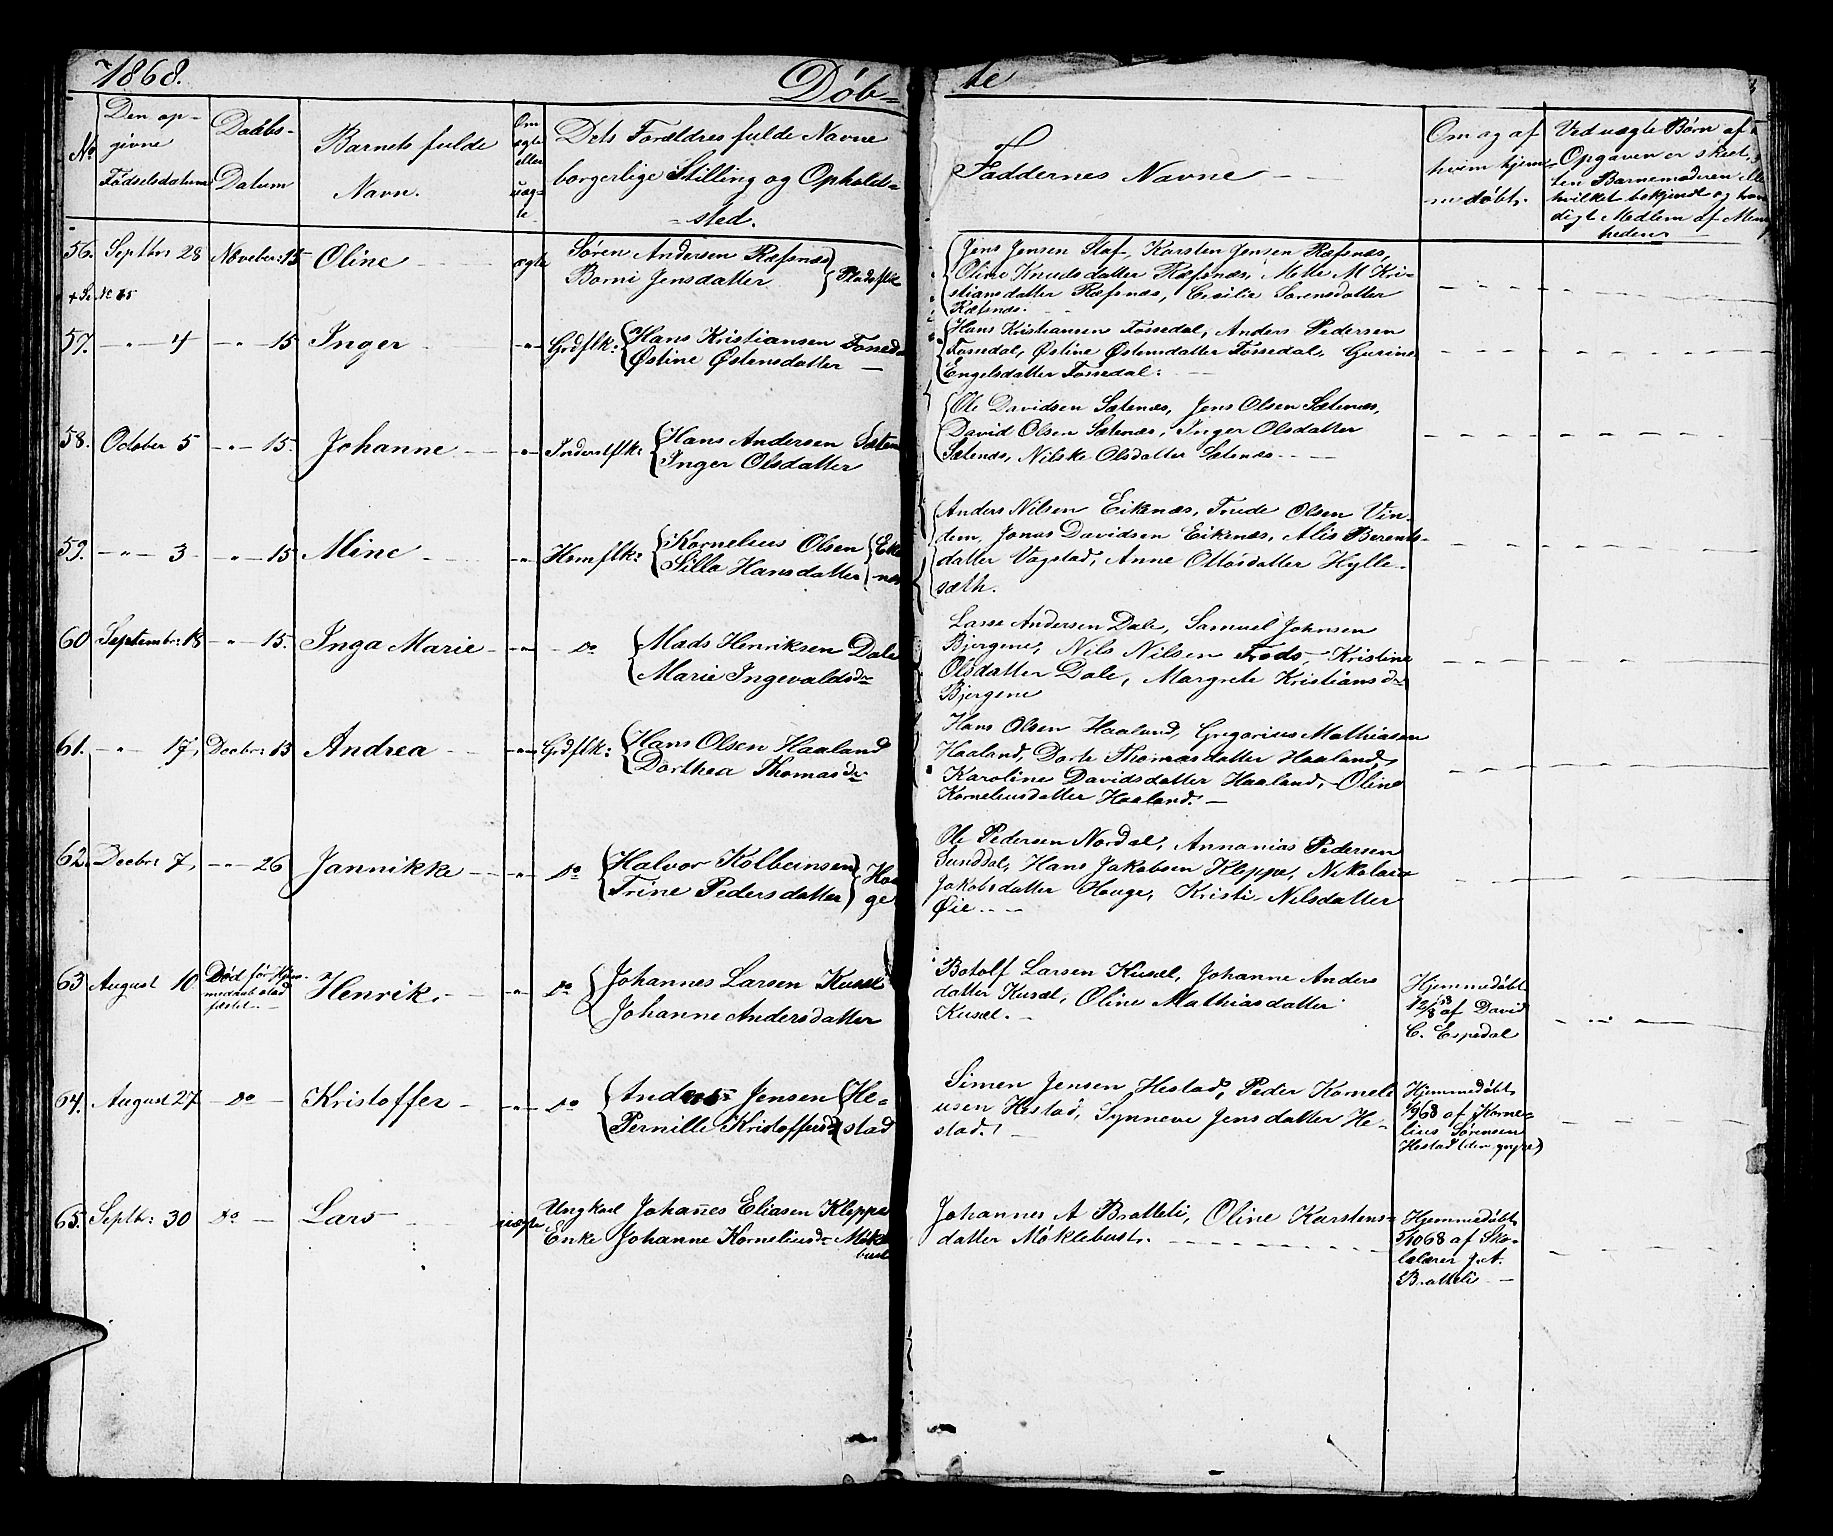 1868.
Døb-
te
No
Den op-
givne
Fødselsdatum
Daabs-
Datum
Barnets fulde
Navn.
Om
ægte
eller
uæg-
te.
Dets Forældres fulde Navne
borgerlige Stilling og Opholds-
sted.
Faddernes Navne
Om og af
hvem hjem-
medøbt.
Ved uægte Børn af
Opgaven er skeet,
ten Barnemoderen
hvilket bekjendt og
digt Medlem af
heden
56. Septbr 28 November 15 Oline ægte
Søren Andersen Ræfsnæs
Borni Jensdatter
Pladsflk
Jens Jensen Staf, Karsten Jensen Ræfsnæs,
Oline Knudsdatter Ræfsnæs, Mette M Kri-
stiansdatter Ræfsnæs, Cesilie Sørensdatter
Ræfsnæs.
57. -"- 4 -"- 15 Inger -"- Grdflk:
Hans Kristiansen Fossedal
Østine Østensdatter
Hans Kristiansen Fossedal, Anders Pedersen
Fossedal, Østine Østensdatter Fossedal, Gurine
Engelsdatter Fossedal.
58. October 5 -"- 15. Johanne -"- Inderstflk:
Hans Andersen Sæten
Inger Olsdatter
Ole Davidsen Sætenæs, Jens Olsen Sætenæs,
David Olsen Sætenæs, Inger Olsdatter
Sætenæs, Nilske Olsdatter Sætenæs.
59. -"- 3 -"- 15 Mine -"- Hsmflk:
Kornelius Olsen
Silla Hansdatter
Eike
næs
Anders Nilsen Eikenæs, Trude Olsen Vin-
dem, Jonas Davidsen Eikenæs, Alis Berents-
datter Vagstad, Anne Ottosdatter Hylle-
sæth.
60 Septembr: 18 -"- 15. Inga Marie -"- Do
Mads Henriksen Dale
Marie Ingevaldsdr
Lasse Andersen Dale, Samuel Johnsen
Bjergene, Nils Nilsen Trods, Kristine
Olsdatter Dale, Margrete Kristiansdr
Bjergene
61. -"- 17, Decbr: 13 Andrea -"- Grdflk:
Hans Olsen Haaland
Dorthea Thomasdr
Hans Olsen Haaland, Gregorius Mathiasen
Haaland, Dorte Thomasdatter Haaland,
Karoline Davidsdatter Haaland, Oline
Korneliusdatter Haaland.
62. Decbr: 7, -"- 26 Jannikke -"- Do
Halvor Kolbeinsen
Trine Pedersdatter
Hou
ge
Ole Pedersen Nordal, Annanias Pedersen
Sunddal, Hans Jakobsen Kleppe, Nikolaia
Jakobsdatter Houge, Kristi Nilsdatter
Øie.
63 August 10 Død før Hjem-
medaab stad
fæstet. Henrik. -"- Do
Johannes Larsen Kusæl
Johanne Andersdatter
Botolf Larsen Kusæl, Johanne Anders
datter Kusæl, Oline Mathiasdatter
Kusæl.
Hjemmedøbt
12/8 af David
C. Espedal
64. August 27 Do Kristoffer -"- Do
Andreas Jensen
Pernille Kristoffersd
He-
stad
Simen Jensen Hestad, Peder Korneli
usen Hestad, Synneve Jensdatter He-
stad.
Hjemmedøbt
1/968 af Korne-
lius Sørensen
Hestad (den yngre)
65. Septbr: 30 Do Lars uægte
Ungkarl Johannes Eliasen Kleppe
Enke Johanne Korneliusdr Mökle
bust
Johannes A Bratteli, Oline Karstens-
datter Møklebust.
Hjemmedøbt
5/1068 af Sko-
lelærer J. A.
Bratteli